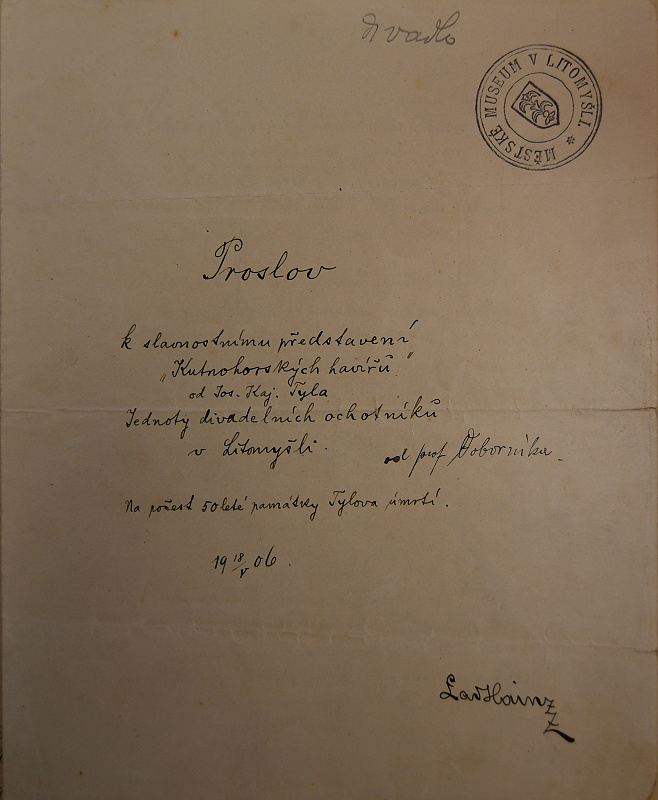 divadlo
MĚSTSKÉ MUSEUM V LITOMYŠLI. *
Proslov
k slavnostnímu představení
„Kutnohorských havířů"
od Jos. Kaj. Tyla
Jednoty divadelních ochotníků
v Litomyšli.
od prof Dobornika.
Na počest 50leté památky Tylova úmrtí.
19 18/V 06.
Lad Hainz